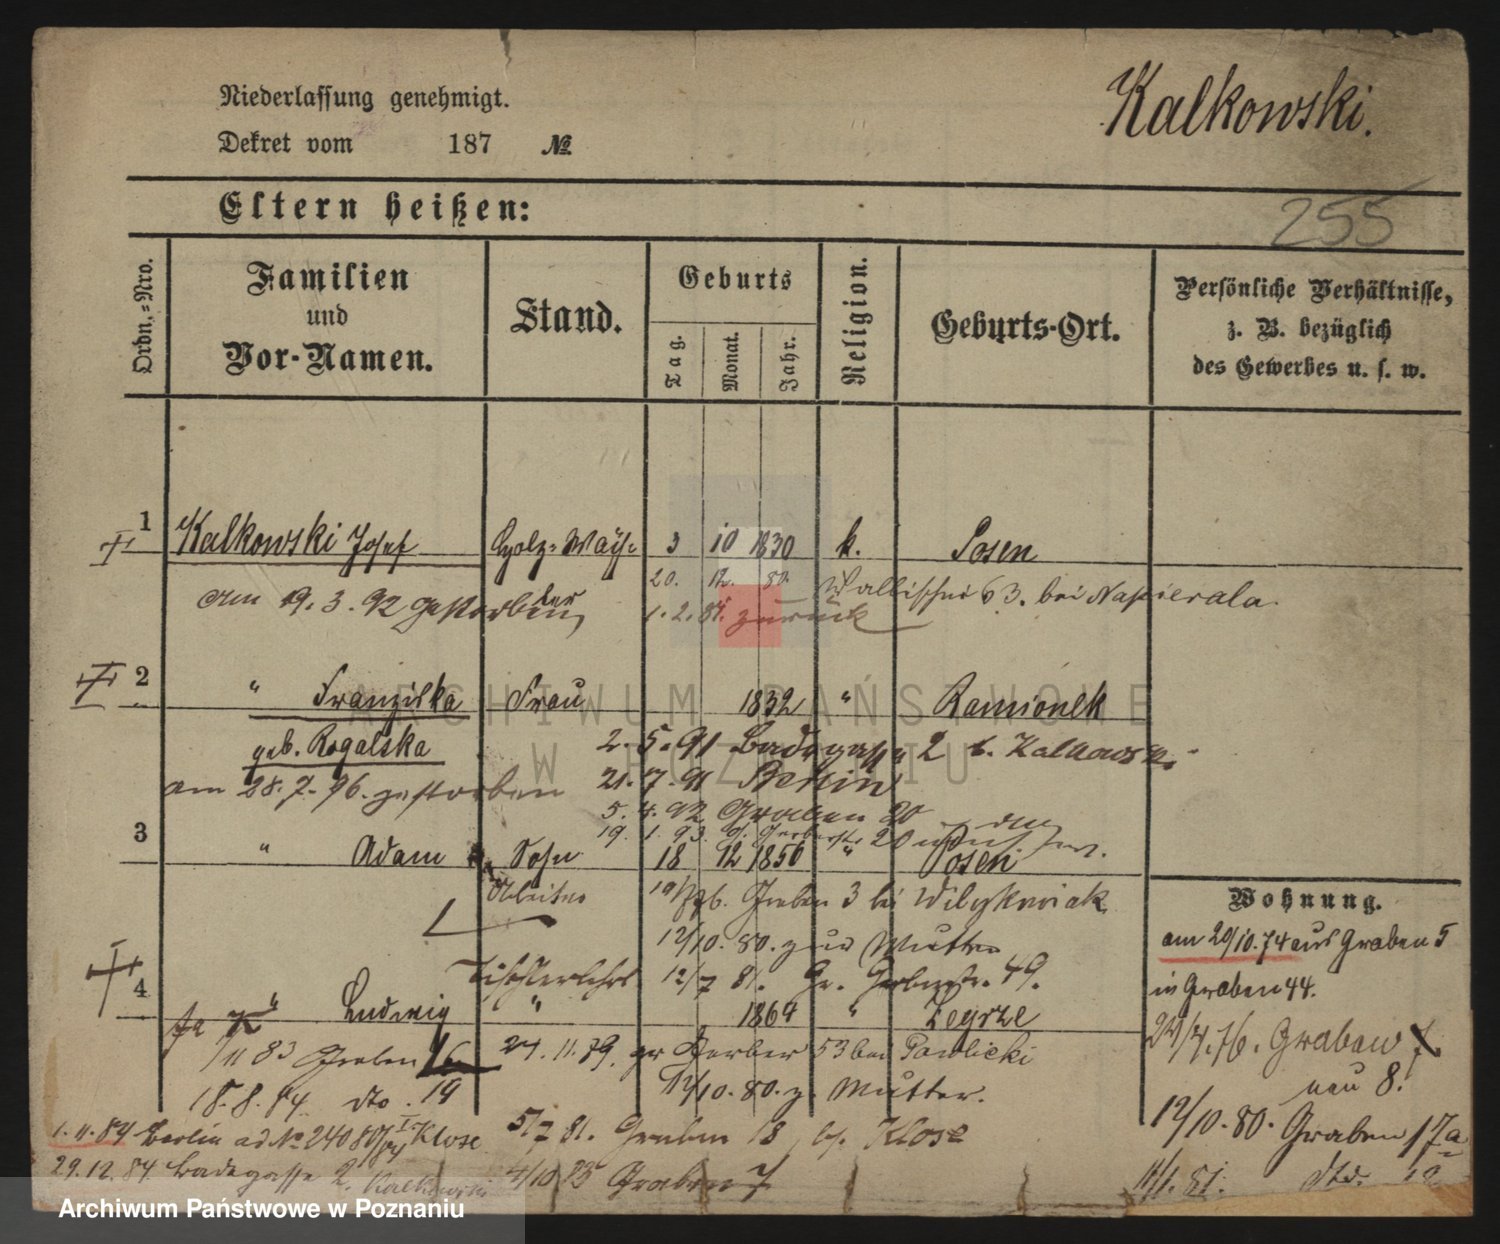 Kalkowski.
Niederlassung genehmigt.
Dekret vom 187 №
Eltern heißen:
255
Ordn.-Nro.
Familien und Vor-Namen.
Stand.
Geburts
Tag.
Monat.
Jahr.
Religion.
Geburts-Ort.
Persönliche Verhältnisse,
z. B. bezüglich
des Gewerbes u. s. w.
1 Kalkowski Josef 3 10 1830 k. Posen
20. 12. 80. Wallischei 63. bei Napierala.
am 19. 3. 92 gestorben 1. 2. 81. zurück
2 " Franziska Frau 1832 " Ramionek
geb. Rogalska 2. 5. 91 Badegasse 2 b. Kalkowski
21. 7. 91 Berlin
am 28. 7. 96. gestorben
5. 4. 92 Graben 20
19. 1. 93. 20
3 " Adam Sohn 18 12 1850 " Posen
Arbeiter Graben 3 bei
12/10. 80. zur Mutter
12/7 81. Gr. Gerberstr. 49.
4 " Ludwig " 1869 " Zegrze
11 83 Graben 16
24. 11. 79. gr Gerber 53 bei Pawlicki
12/10. 80. z. Mutter.
18. 8. 84 dto. 19
1. 11. 84 Berlin ad № Klose
5/7 81. Graben 18 bei Klose
29. 12. 84. Badegasse 2. Kalkowski
4/10 83 Graben 7
Wohnung.
am 20/10. 74 aus Graben 5
in Graben 44.
Graben
neu 8.
12/10. 80. Graben 17a
11/1. 81. dto. 12
ARCHIWUM PAŃSTWOWE
W POZNANIU
Archiwum Państwowe w Poznaniu